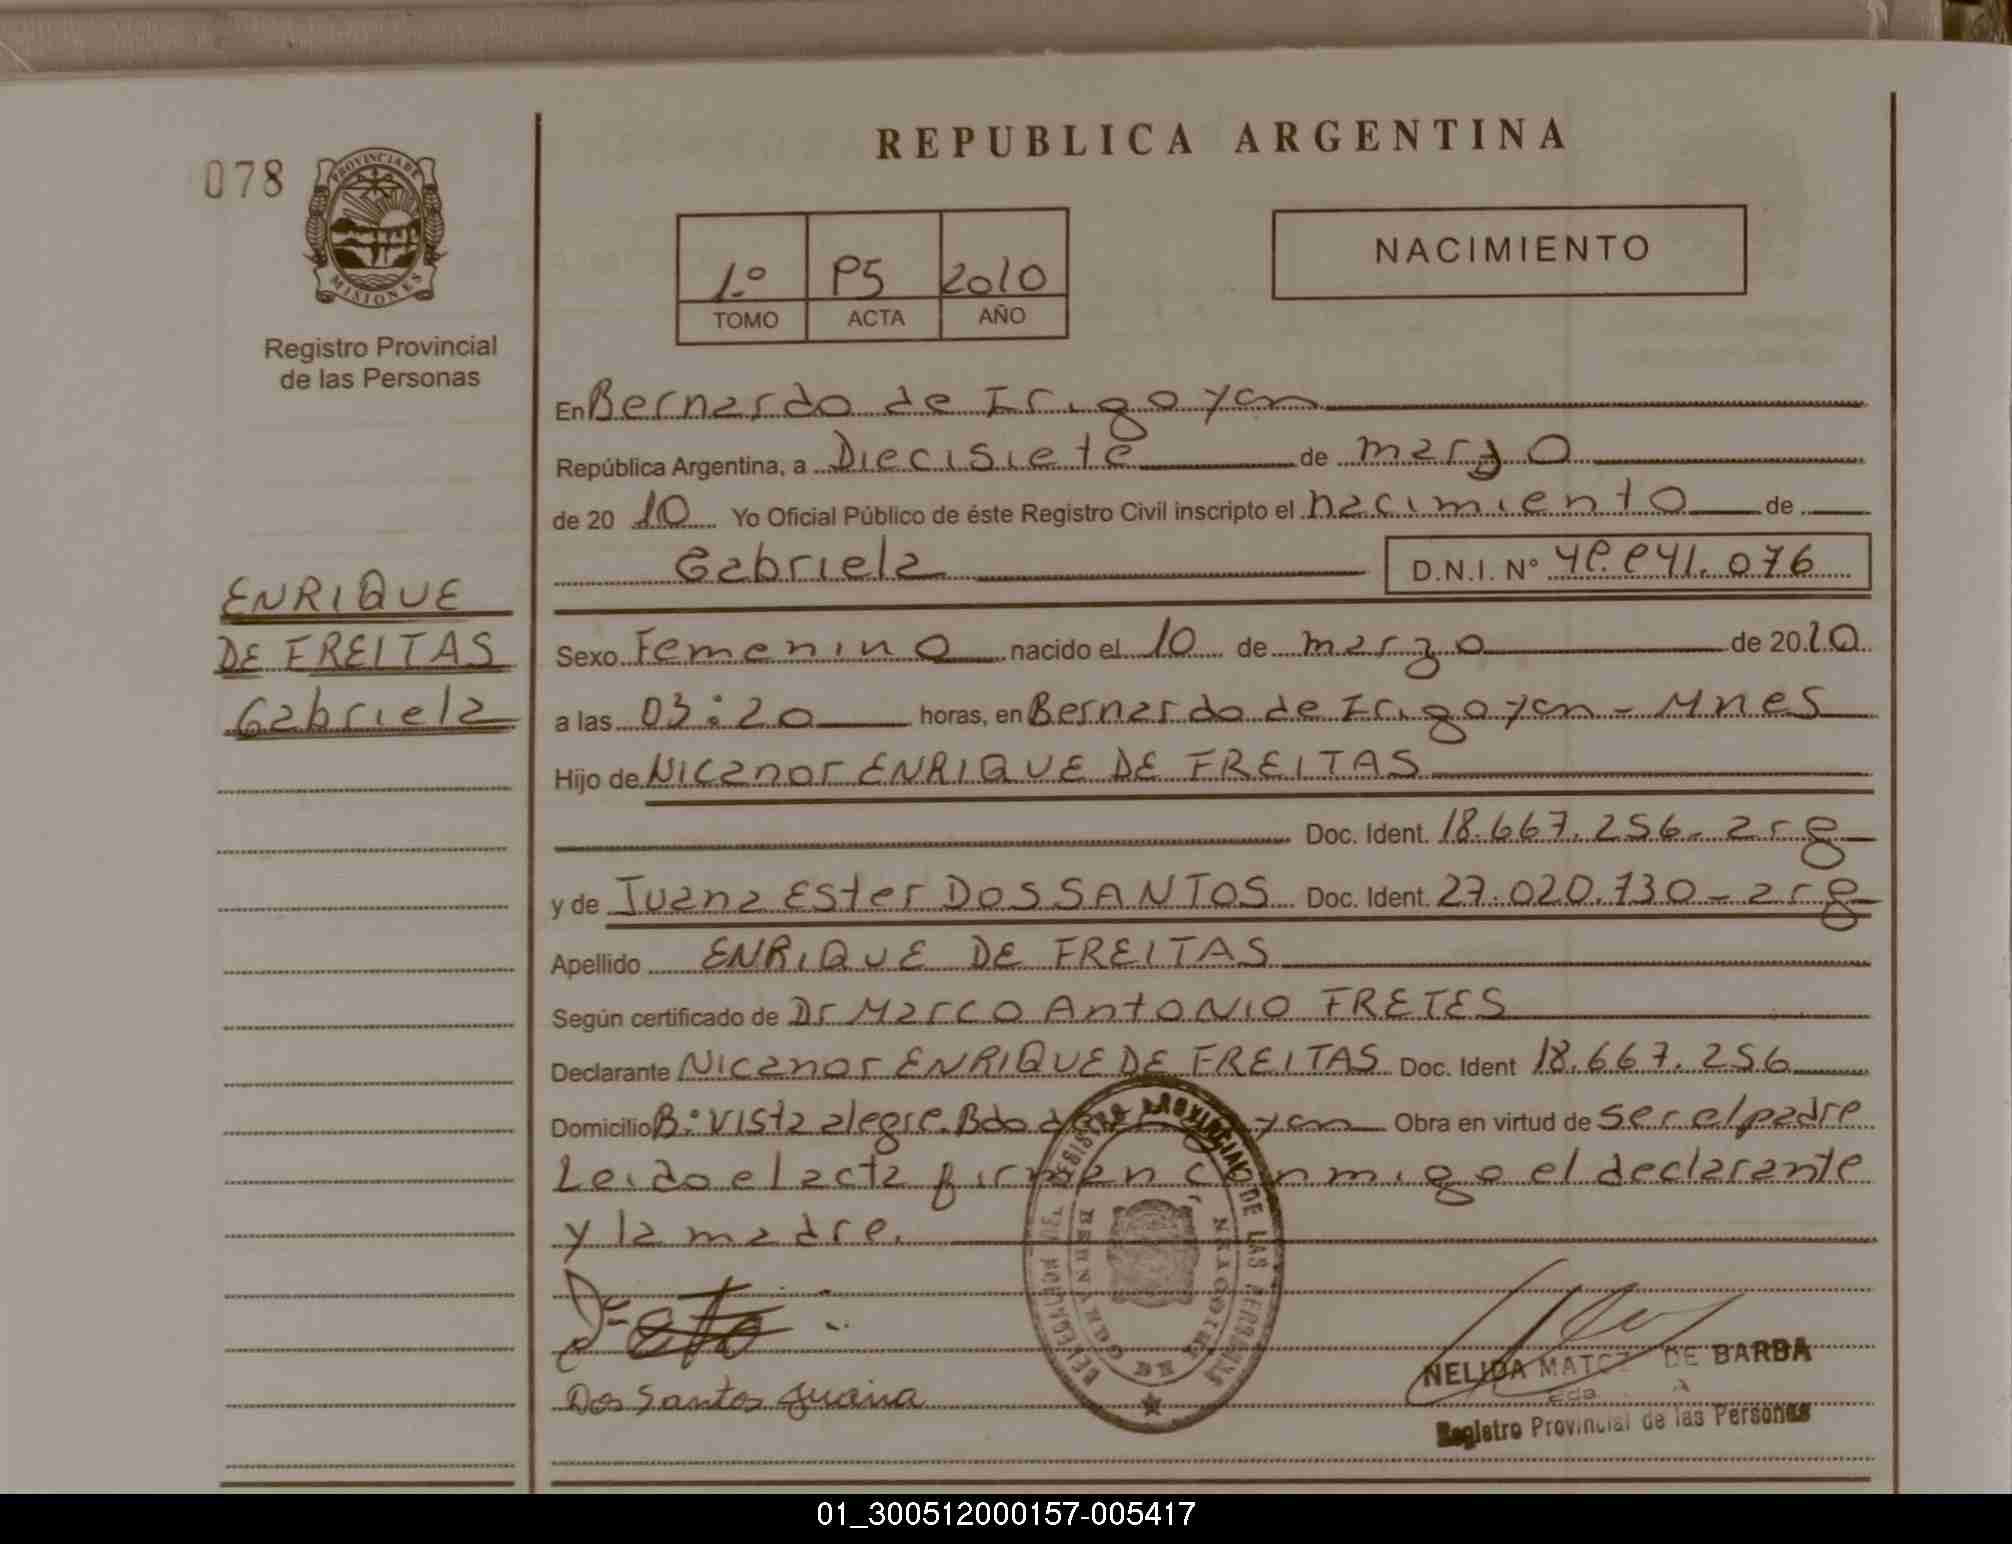 078
PROVINCIA DE
MISIONES
Registro Provincial
de las Personas
REPUBLICA ARGENTINA
1.º 2010
TOMO ACTA AÑO
NACIMIENTO
En Bernardo de Irigoyen
República Argentina, a Diecisiete de marzo
de 2010 Yo Oficial Público de éste Registro Civil inscripto el nacimiento de
Gabriela D.N.I. Nº
ENRIQUE
DE FREITAS
Gabriela
Sexo Femenino nacido el 10 de marzo de 2010
a las 03:20 horas, en Bernardo de Irigoyen - Mnes
Hijo de Nicanor ENRIQUE DE FREITAS
Doc. Ident. 18.667.256- arg
y de Juana Ester DOS SANTOS Doc. Ident. 27.020.730- arg
Apellido ENRIQUE DE FREITAS
Según certificado de Dr Marco Antonio FRETES
Declarante Nicanor ENRIQUE DE FREITAS Doc. Ident 18.667.256
Domicilio B: Vista alegre. Bdo de Irigoyen Obra en virtud de ser el padre
Leido el acta firman conmigo el declarante
y la madre.
REGISTRO PROVINCIAL DE LAS PERSONAS
DELEGACION
BERNARDO DE IRIGOYEN
Dos Santos Juana
NELIDA MATOZ DE BARBA
Registro Provincial de las Personas
01_300512000157-005417